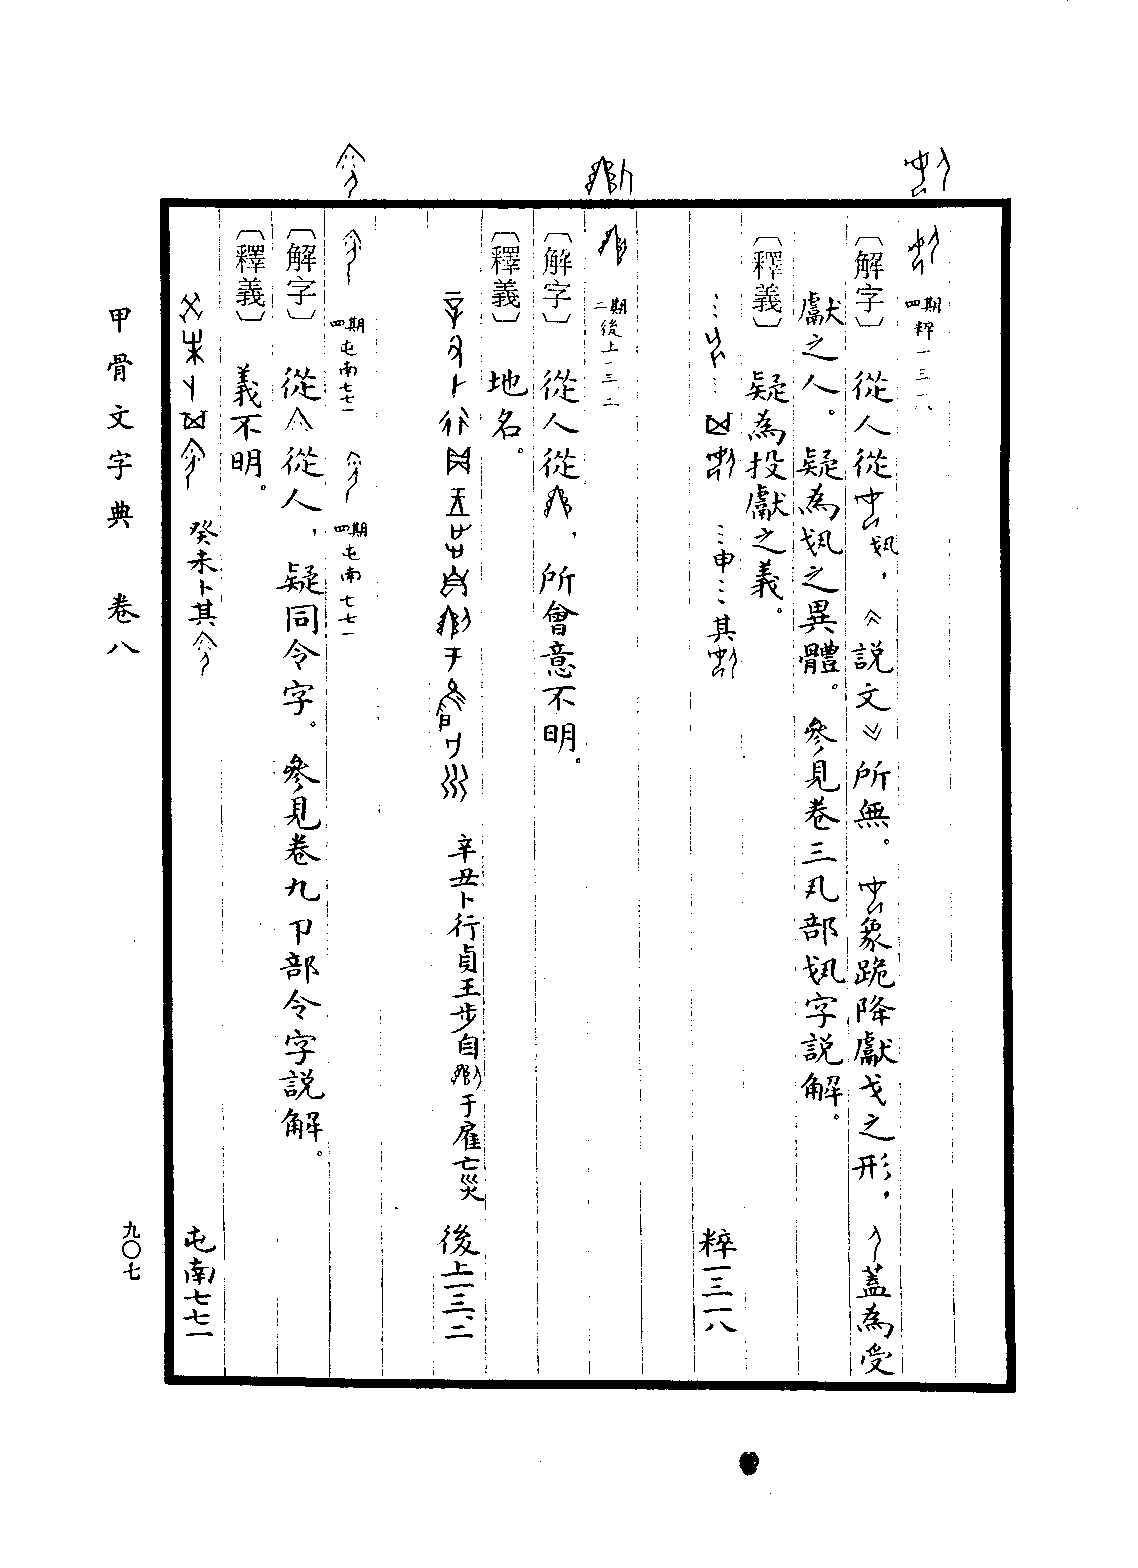 四期 粹一三一八
〔解字〕 從人從 𢦏,《説文》所無。 象跪降獻戈之形, 蓋為受
獻之人。疑為 之異體。參見卷三丮部 字説解。
〔釋義〕 疑為投獻之義。
…申…其 粹一三一八
二期 後上一三·二
〔解字〕 從人從 ,所會意不明。
〔釋義〕 地名。
辛丑卜行貞王步自 于雇亡災 後上一三·二
四期 屯南七七一 四期 屯南七七一
〔解字〕 從亼從人,疑同令字。參見卷九卩部令字説解。
〔釋義〕 義不明。
癸未卜其 屯南七七一
甲骨文字典 卷八
九〇七